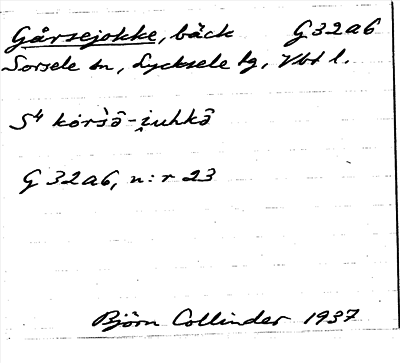 Gårsejokke, bäck G32a6
Sorsele sn, Lycksele lg, Vbt l.
S⁴ kȯrs̀ə̑-i̯uhkə̑
G 32a6, n:r 23
Björn Collinder 1937